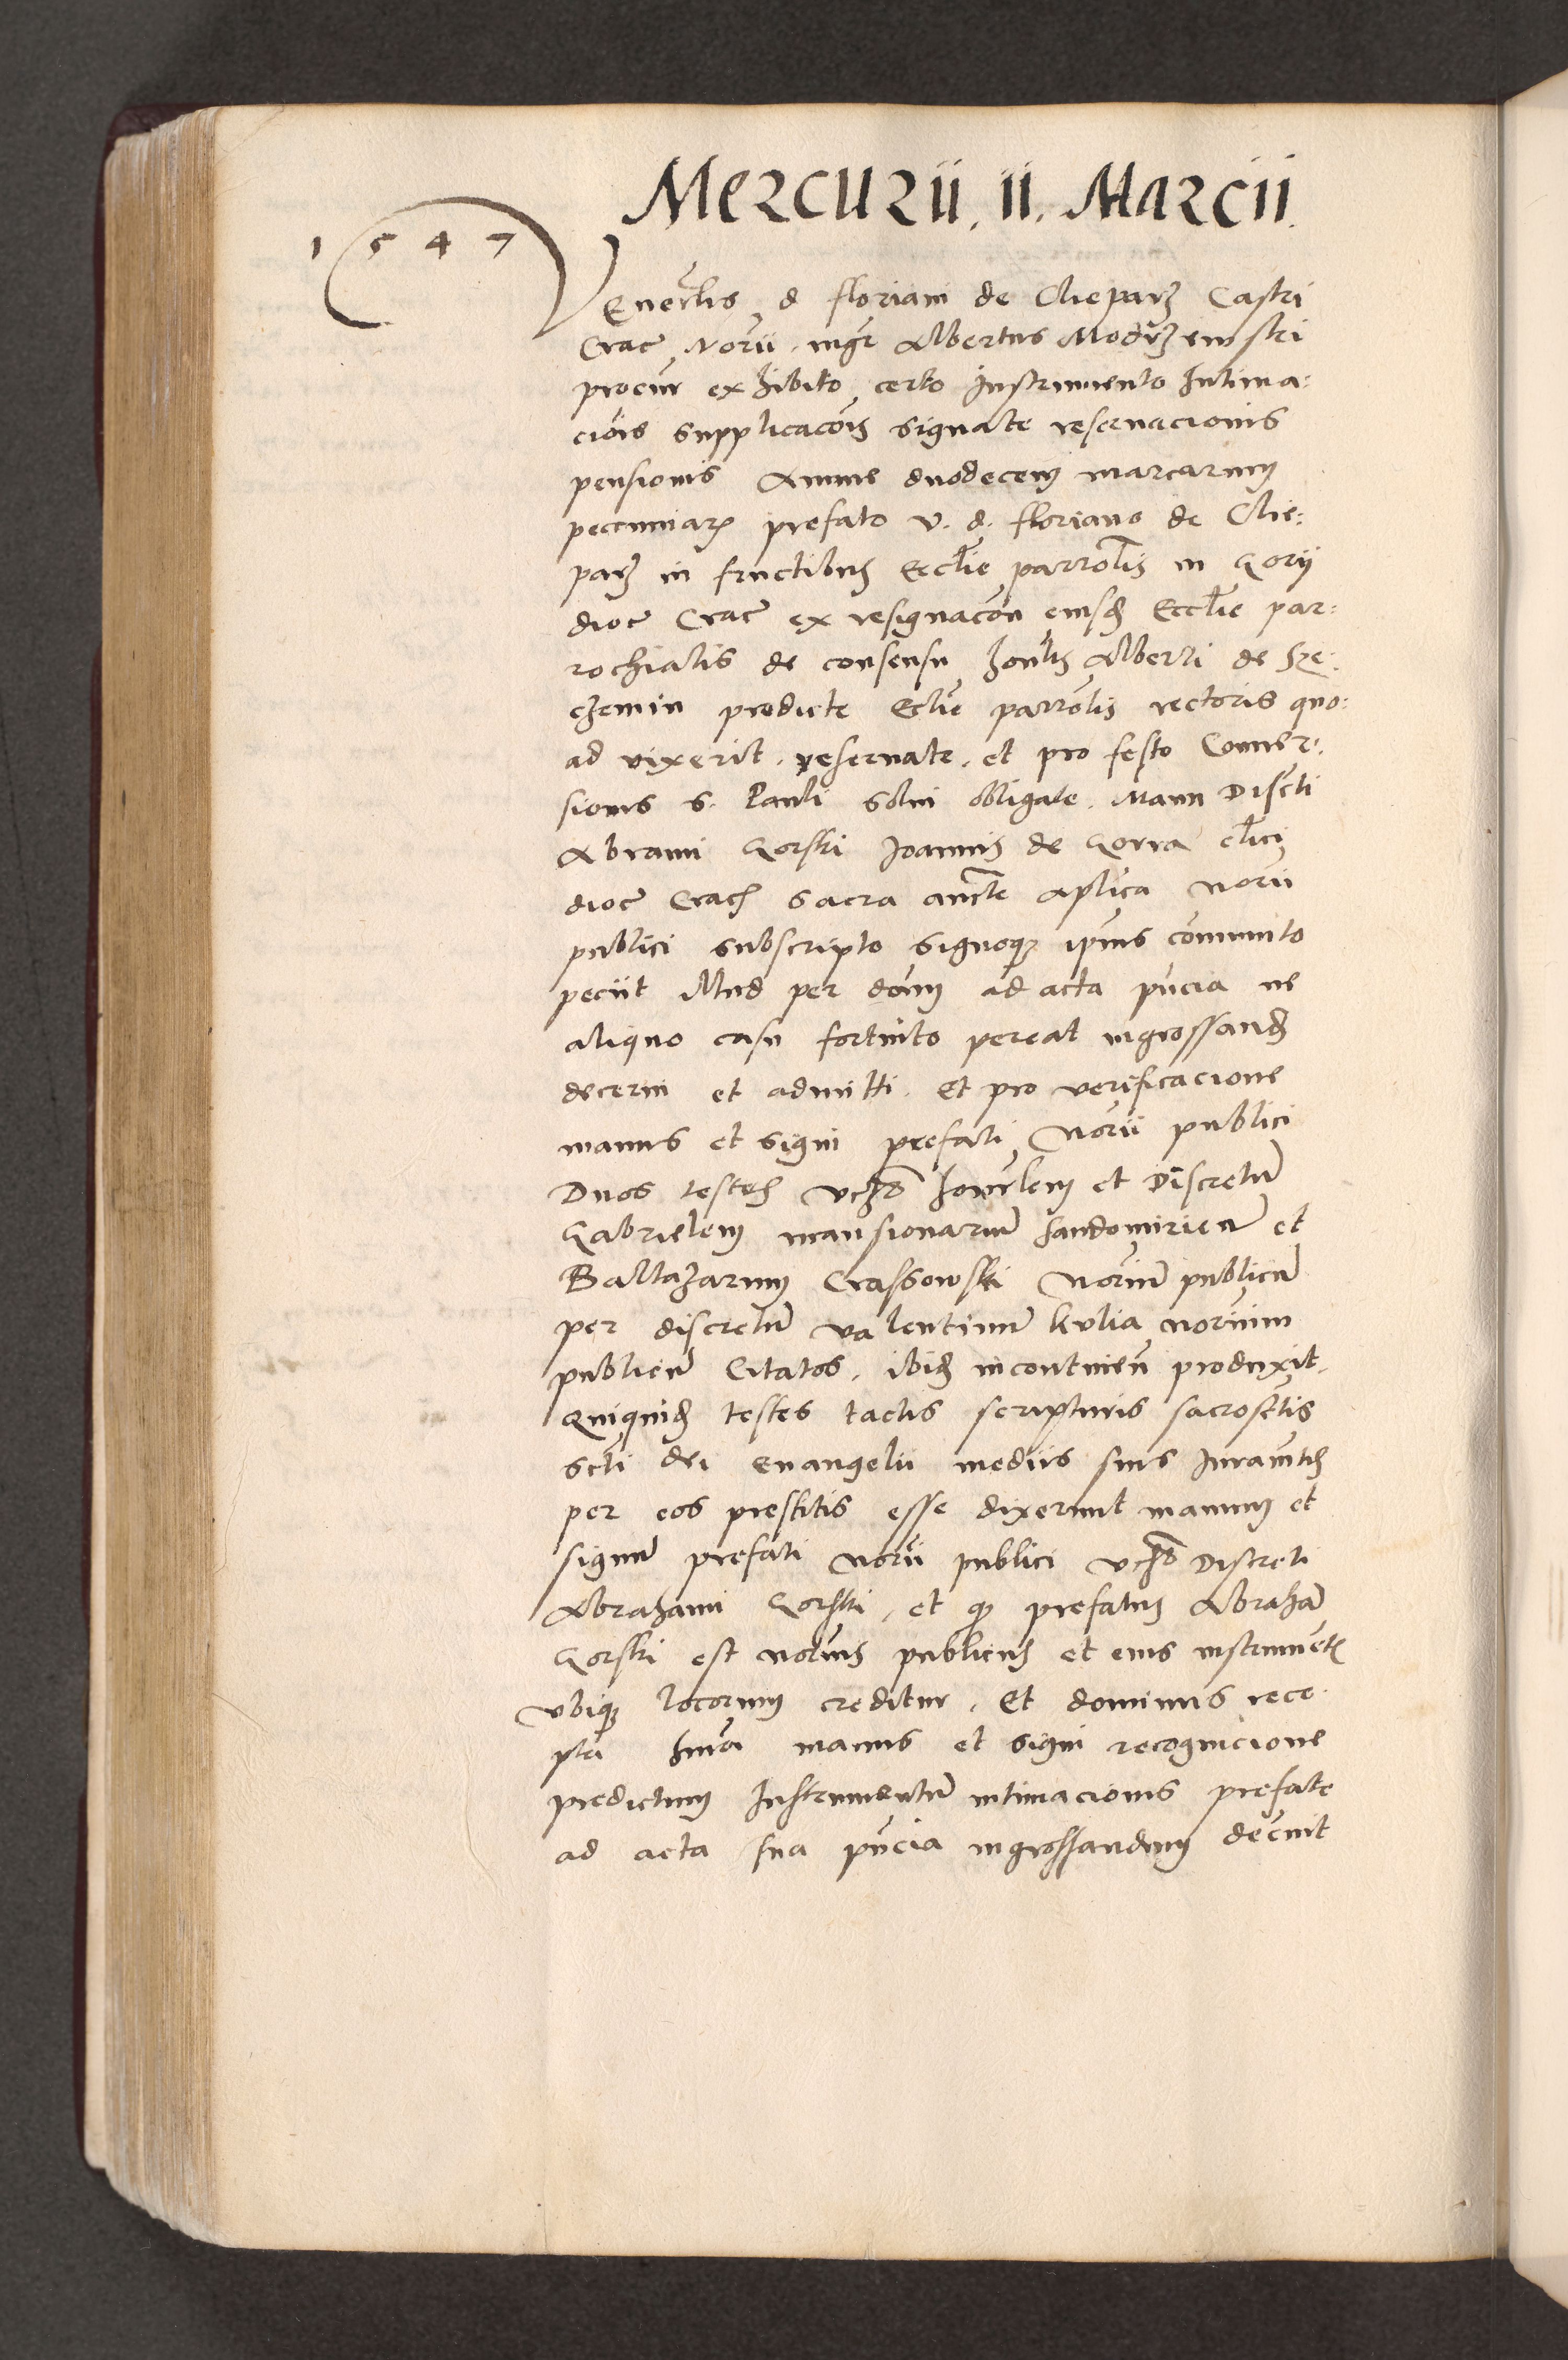 Mercurii. ii. Marcii.
1547
Venerlis d Floriani de Clieparz Castri
Crac Norii. mgr Albertus Modrzewstri
procur exhibito certo Instrumento Intima:
ciois supplicacois signate reservacionis
pensionis Annue duodecem marcarum
pecuniar prefato v. d. Floriano de Clie:
parz in fructibus Ecclie parrolis in Gorii
dioc Crac ex resignacon eiusd Ecclie par:
rochialis de consensu honlis Alberti de Sze:
czemin predicte Eclie parrolis rectoris quo:
ad vixerit. reservate. et pro festo Conver:
sionis S. Pauli solvi obligate. Manu Discti
Abrami Gorski Joannis de Gorra clici
dioc Crac sacra aucte aplica norii
publici subscripto signoque ipius comunito
peciit Illud per donum ad acta pncia ne
aliquo casu fortuito pereat ingrossand
decerni et admitti. Et pro verificacione
manus et signi prefati Norii publici
Duos testes vczd honorlem et Discretum
Gabrielem mansionarium Sandomirien et
Baltazarum Crassowski Norium publicum
per discretum valentinum kulia norium
publicum Citatos. ibid incontinen produxit.
Quiquid testes tactis scripturis sacrosctis
scti dei evangelii mediis suis Iuramtis
per eos prestitis esse dixerunt manum et
signum prefati Norii publici vczd Discreti
Abrahami Gorski. et quod prefatus Abraham
Gorski est norius publicus et eius instrumet
ubique locorum creditur. Et dominus rece
pta hmoi manus et signi recognicione
predictum Instrumentum intimacionis prefate
ad acta sua pncia ingrossandum decrevit